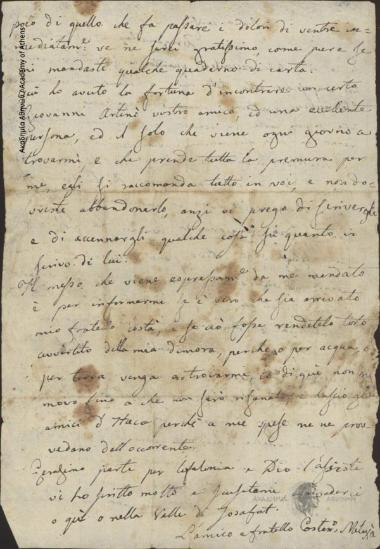 poco di quello che fa passare i dolori di ventre im-
mediatam.e ve ne sarei gratissimo, come pure se
mi mandaste qualche quaderno di carta.
Quì ho avuto la fortuna d'incontrare un certo
Giovanni Artinò vostro amico, ed una eccellente
persona, ed il solo che viene ogni giorno a
trovarmi e che prende tutta la premura per
me, egli si raccomanda tutto in voi, e non do-
vreste abbandonarlo, anzi vi prego di scrivergli
e di accennargli qualche cosa su quanto vi
scrivo di lui.
Il messo, che viene espressam.e da me mandato
è per informarmi se è vero che sia arrivato
mio fratello costà, e se ciò fosse rendetelo tosto
avvertito della mia dimora, perchè o per acqua, o
per terra venga a trovarmi, io di quì non mi
movo fino a che non sarò risanato, e lascio gli
amici d' a mie spese ne pro-
vedano dell'occorrente.
parte per Cefalonia e Dio l'assista
vi ho scritto molto e a rivederci
o quì o nella Valle di Giosafat.
L'amico e fratello
Ακαδημία Αθηνών / Academy of Athens